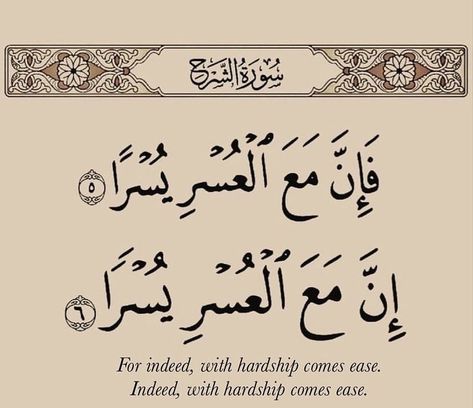 سُورَةُ الشَّرْحِ
فَإِنَّ مَعَ ٱلْعُسْرِ يُسْرًا ٥
إِنَّ مَعَ ٱلْعُسْرِ يُسْرًا ٦
For indeed, with hardship comes ease.
Indeed, with hardship comes ease.